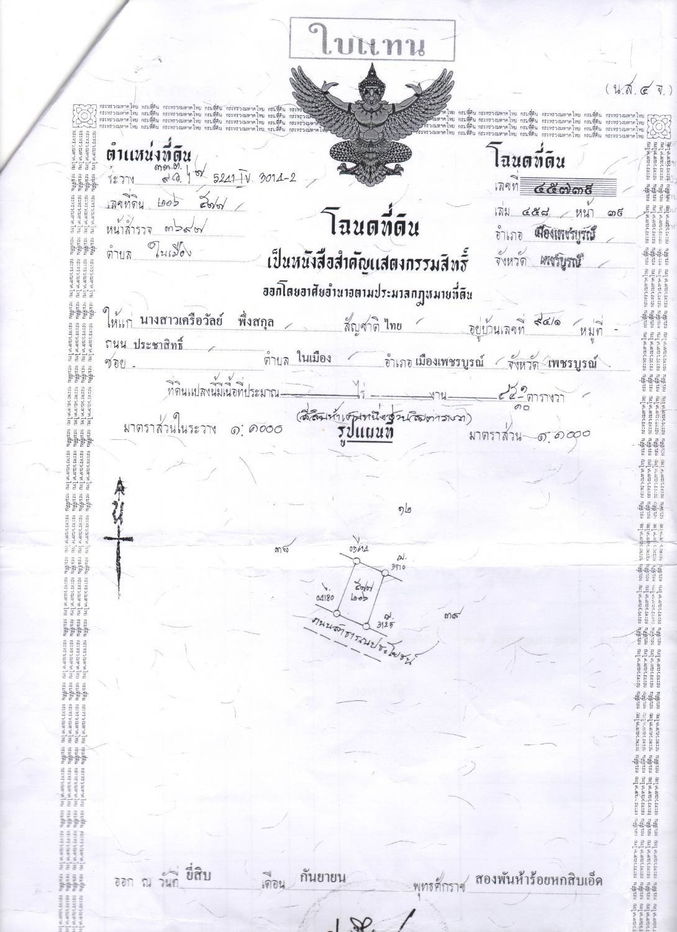 ใบแทน
(น.ส. ๔ จ.)
ตำแหน่งที่ดิน
ระวาง 5241 IV 3014-2
เลขที่ดิน ๒๐๖
หน้าสำรวจ ๓๖๙๗
ตำบล ในเมือง
โฉนดที่ดิน
เลขที่ ๔๕๗๓๙
เล่ม ๔๕๘ หน้า ๓๙
อำเภอ เมืองเพชรบูรณ์
จังหวัด เพชรบูรณ์
โฉนดที่ดิน
เป็นหนังสือสำคัญแสดงกรรมสิทธิ์
ออกโดยอาศัยอำนาจตามประมวลกฎหมายที่ดิน
ให้แก่ นางสาวเครือวัลย์ พึ่งสกุล สัญชาติ ไทย อยู่บ้านเลขที่ ๙๔/๑ หมู่ที่ -
ถนน ประชาสิทธิ์
ซอย - ตำบล ในเมือง อำเภอ เมืองเพชรบูรณ์ จังหวัด เพชรบูรณ์
ที่ดินแปลงนี้มีเนื้อที่ประมาณ ไร่ งาน ตารางวา
มาตราส่วนในระวาง ๑:๑๐๐๐ รูปแผนที่ มาตราส่วน ๑:๑๐๐๐
น
๑๒
๓๘
๒๐๖
๓๙
ถนนสาธารณประโยชน์
ออก ณ วันที่ ยี่สิบ เดือน กันยายน พุทธศักราช สองพันห้าร้อยหกสิบเอ็ด